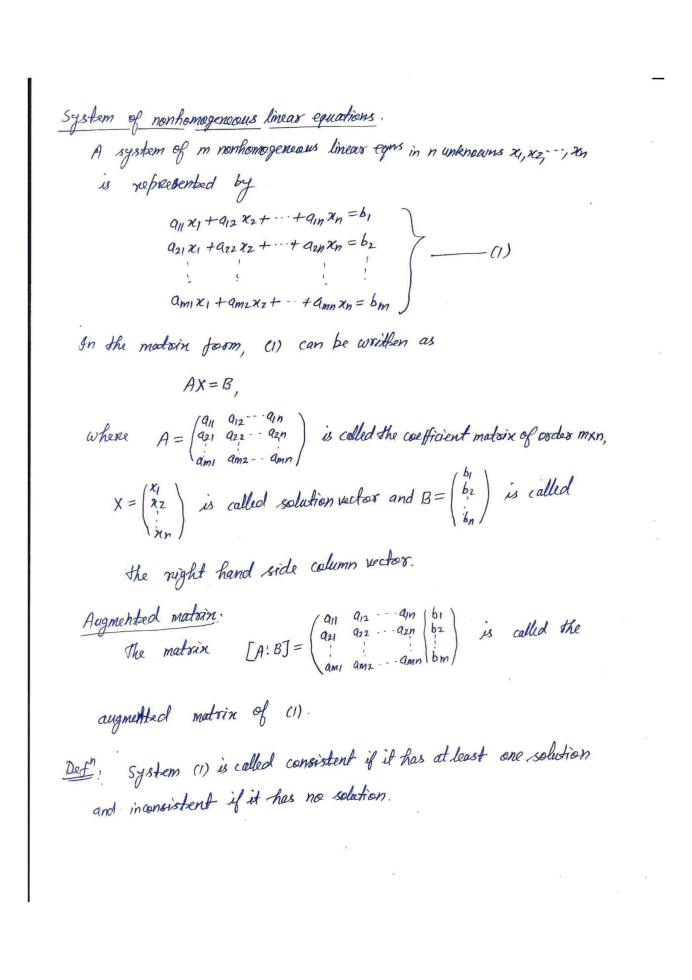 System of nonhomogeneous linear equations.
A system of m nonhomogeneous linear eqns in n unknowns x₁, x₂, ---, xₙ
is represented by
a₁₁ x₁ + a₁₂ x₂ + ⋯ + a₁ₙ xₙ = b₁
a₂₁ x₁ + a₂₂ x₂ + ⋯ + a₂ₙ xₙ = b₂
⋮ ⋮ ⋮ ⋮ —— (1)
aₘ₁ x₁ + aₘ₂ x₂ + ⋯ + aₘₙ xₙ = bₘ
In the matrix form, (1) can be written as
AX = B,
where A = (a₁₁ a₁₂ --- a₁ₙ; a₂₁ a₂₂ -- a₂ₙ; aₘ₁ aₘ₂ -- aₘₙ) is called the coefficient matrix of order m×n,
X = (x₁; x₂; ⋮; xₙ) is called solution vector and B = (b₁; b₂; ⋮; bₙ) is called
the right hand side column vector.
Augmented matrix:
The matrix [A⋮B] = (a₁₁ a₁₂ --- a₁ₙ | b₁; a₂₁ a₂₂ --- a₂ₙ | b₂; ⋮ ⋮ ⋮ | ⋮; aₘ₁ aₘ₂ --- aₘₙ | bₘ) is called the
augmented matrix of (1).
Defⁿ: System (1) is called consistent if it has at least one solution
and inconsistent if it has no solution.